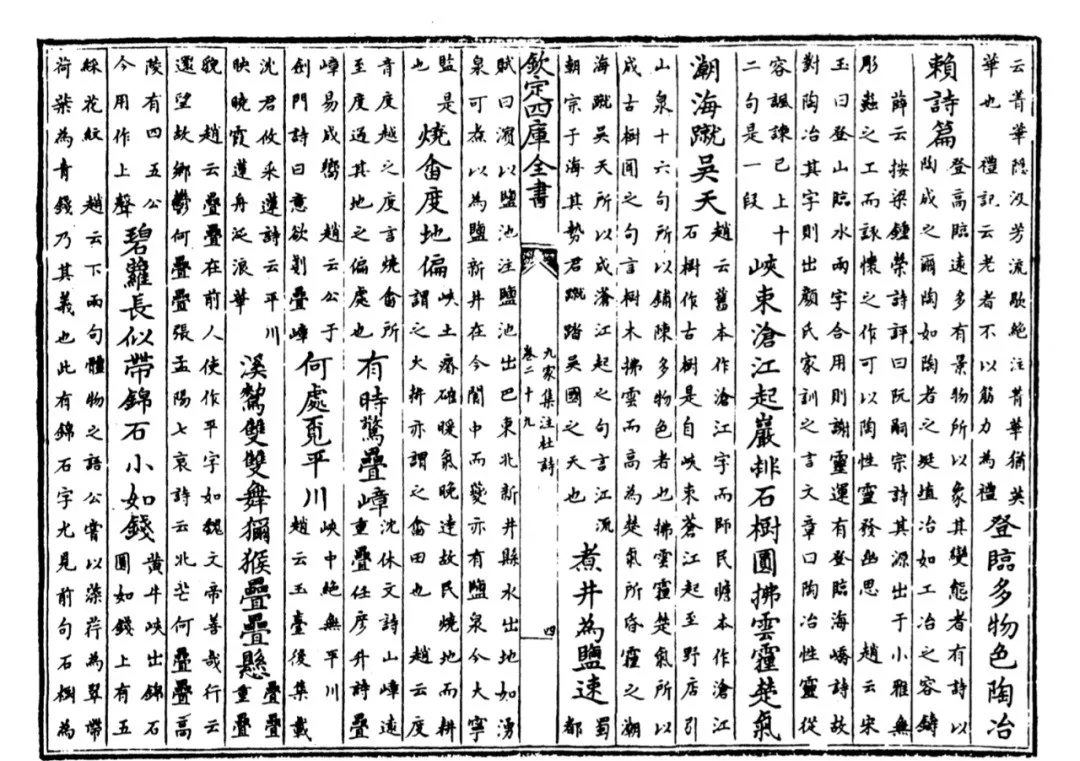 云菁華隱没芳流歇絶注菁華猶英
華也 禮記云老者不以筋力為禮
登臨多物色陶冶
賴詩篇
登高臨遠多有景物所以象其變態者有詩以
陶成之爾陶如陶者之埏埴冶如工冶之容鑄
薛云按梁鍾嶸詩評曰阮嗣宗詩其源出于小雅無
彫蟲之工而詠懷之作可以陶性靈發幽思 趙云宋
玉曰登山臨水兩字合用則謝靈運有登臨海嶠詩故
對陶冶其字則出顏氏家訓之言文章曰陶冶性靈從
容諷諫已上十
二句是一段
峽束滄江起巖排石樹圓拂雲霾楚氣
潮海蹴吳天
趙云舊本作滄江字而師民瞻本作滄江
石樹作古樹是自峽束蒼江起至野店引
山泉十六句所以鋪陳多物色者也拂雲霾楚氣所以
成古樹圓之句言樹木拂雲而高為楚氣所昏霾之潮
海蹴吳天所以成滄江起之句言江流
朝宗于海其勢若蹴踏吳國之天也
煮井為鹽速
蜀
都
欽定四庫全書
九家集注杜詩
卷二十九
四
賦曰濱以鹽池注鹽池出巴東北新井縣水出地如湧
泉可煮以為鹽新井在今閬中而夔亦有鹽泉今大寧
監是
也
燒畬度地偏
峽土瘠确暖氣晚達故民燒地而耕
謂之火耕亦謂之畬田也 趙云度
音度越之度言燒畬所
至度過其地之偏處也
有時驚疊嶂
沈休文詩山嶂遠
重疊任彥升詩疊
嶂易成響 趙云公于
劍門詩曰意欲剗疊嶂
何處覓平川
峽中絶無平川
趙云玉臺後集載
沈君攸采蓮詩云平川
映曉霞蓮舟泛浪華
溪鶩雙雙舞獼猴疊疊懸
疊疊
重疊
貌 趙云疊疊在前人使作平字如魏文帝善哉行云
還望故鄉鬱何疊疊張孟陽七哀詩云北芒何疊疊高
陵有四五公
今用作上聲
碧蘿長似帶錦石小如錢
黃牛峽出錦石
圓如錢上有五
綵花紋 趙云下兩句體物之語公嘗以藻荇為翠帶
荷葉為青錢乃其義也此有錦石字尤見前句石樹為